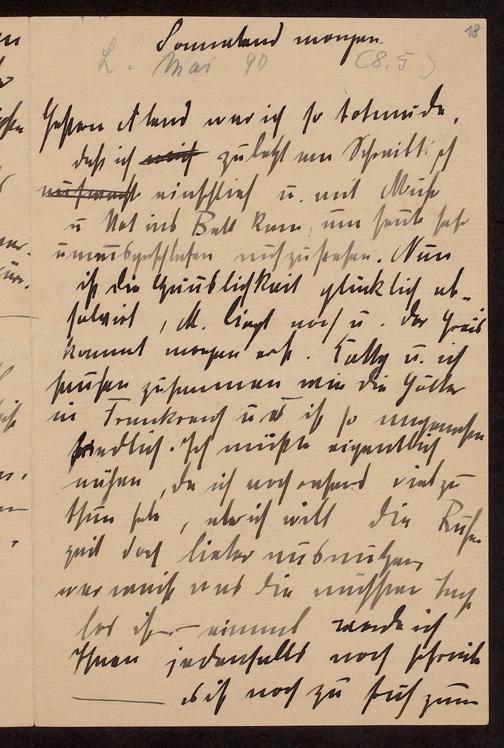 18
Sonnabend morgen.
L. Mai 90 (8.5)
Gestern Abend war ich so totmüde,
daß ich zuletzt am Schreibtisch
einschlief u. mit Mühe
u Not ins Bett kam, um heute sehr
unausgeschlafen aufzustehen. Nun
ist die Häuslichkeit glücklich ab-
solvirt, M. liegt noch u. der Greis
kommt morgen erst. Tatty u. ich
hausen zusammen wie die Götter
in Frankreich u es ist so angenehm
friedlich. Ich müßte eigentlich
nähen, da ich noch viel zu
thun habe, aber ich will die Ruhe
zeit doch lieber ausnutzen,
wer weiß was die nächsten Tage
los ist — einmal werde ich
Ihnen jedenfalls noch schreiben
— es ist noch zu früh zum